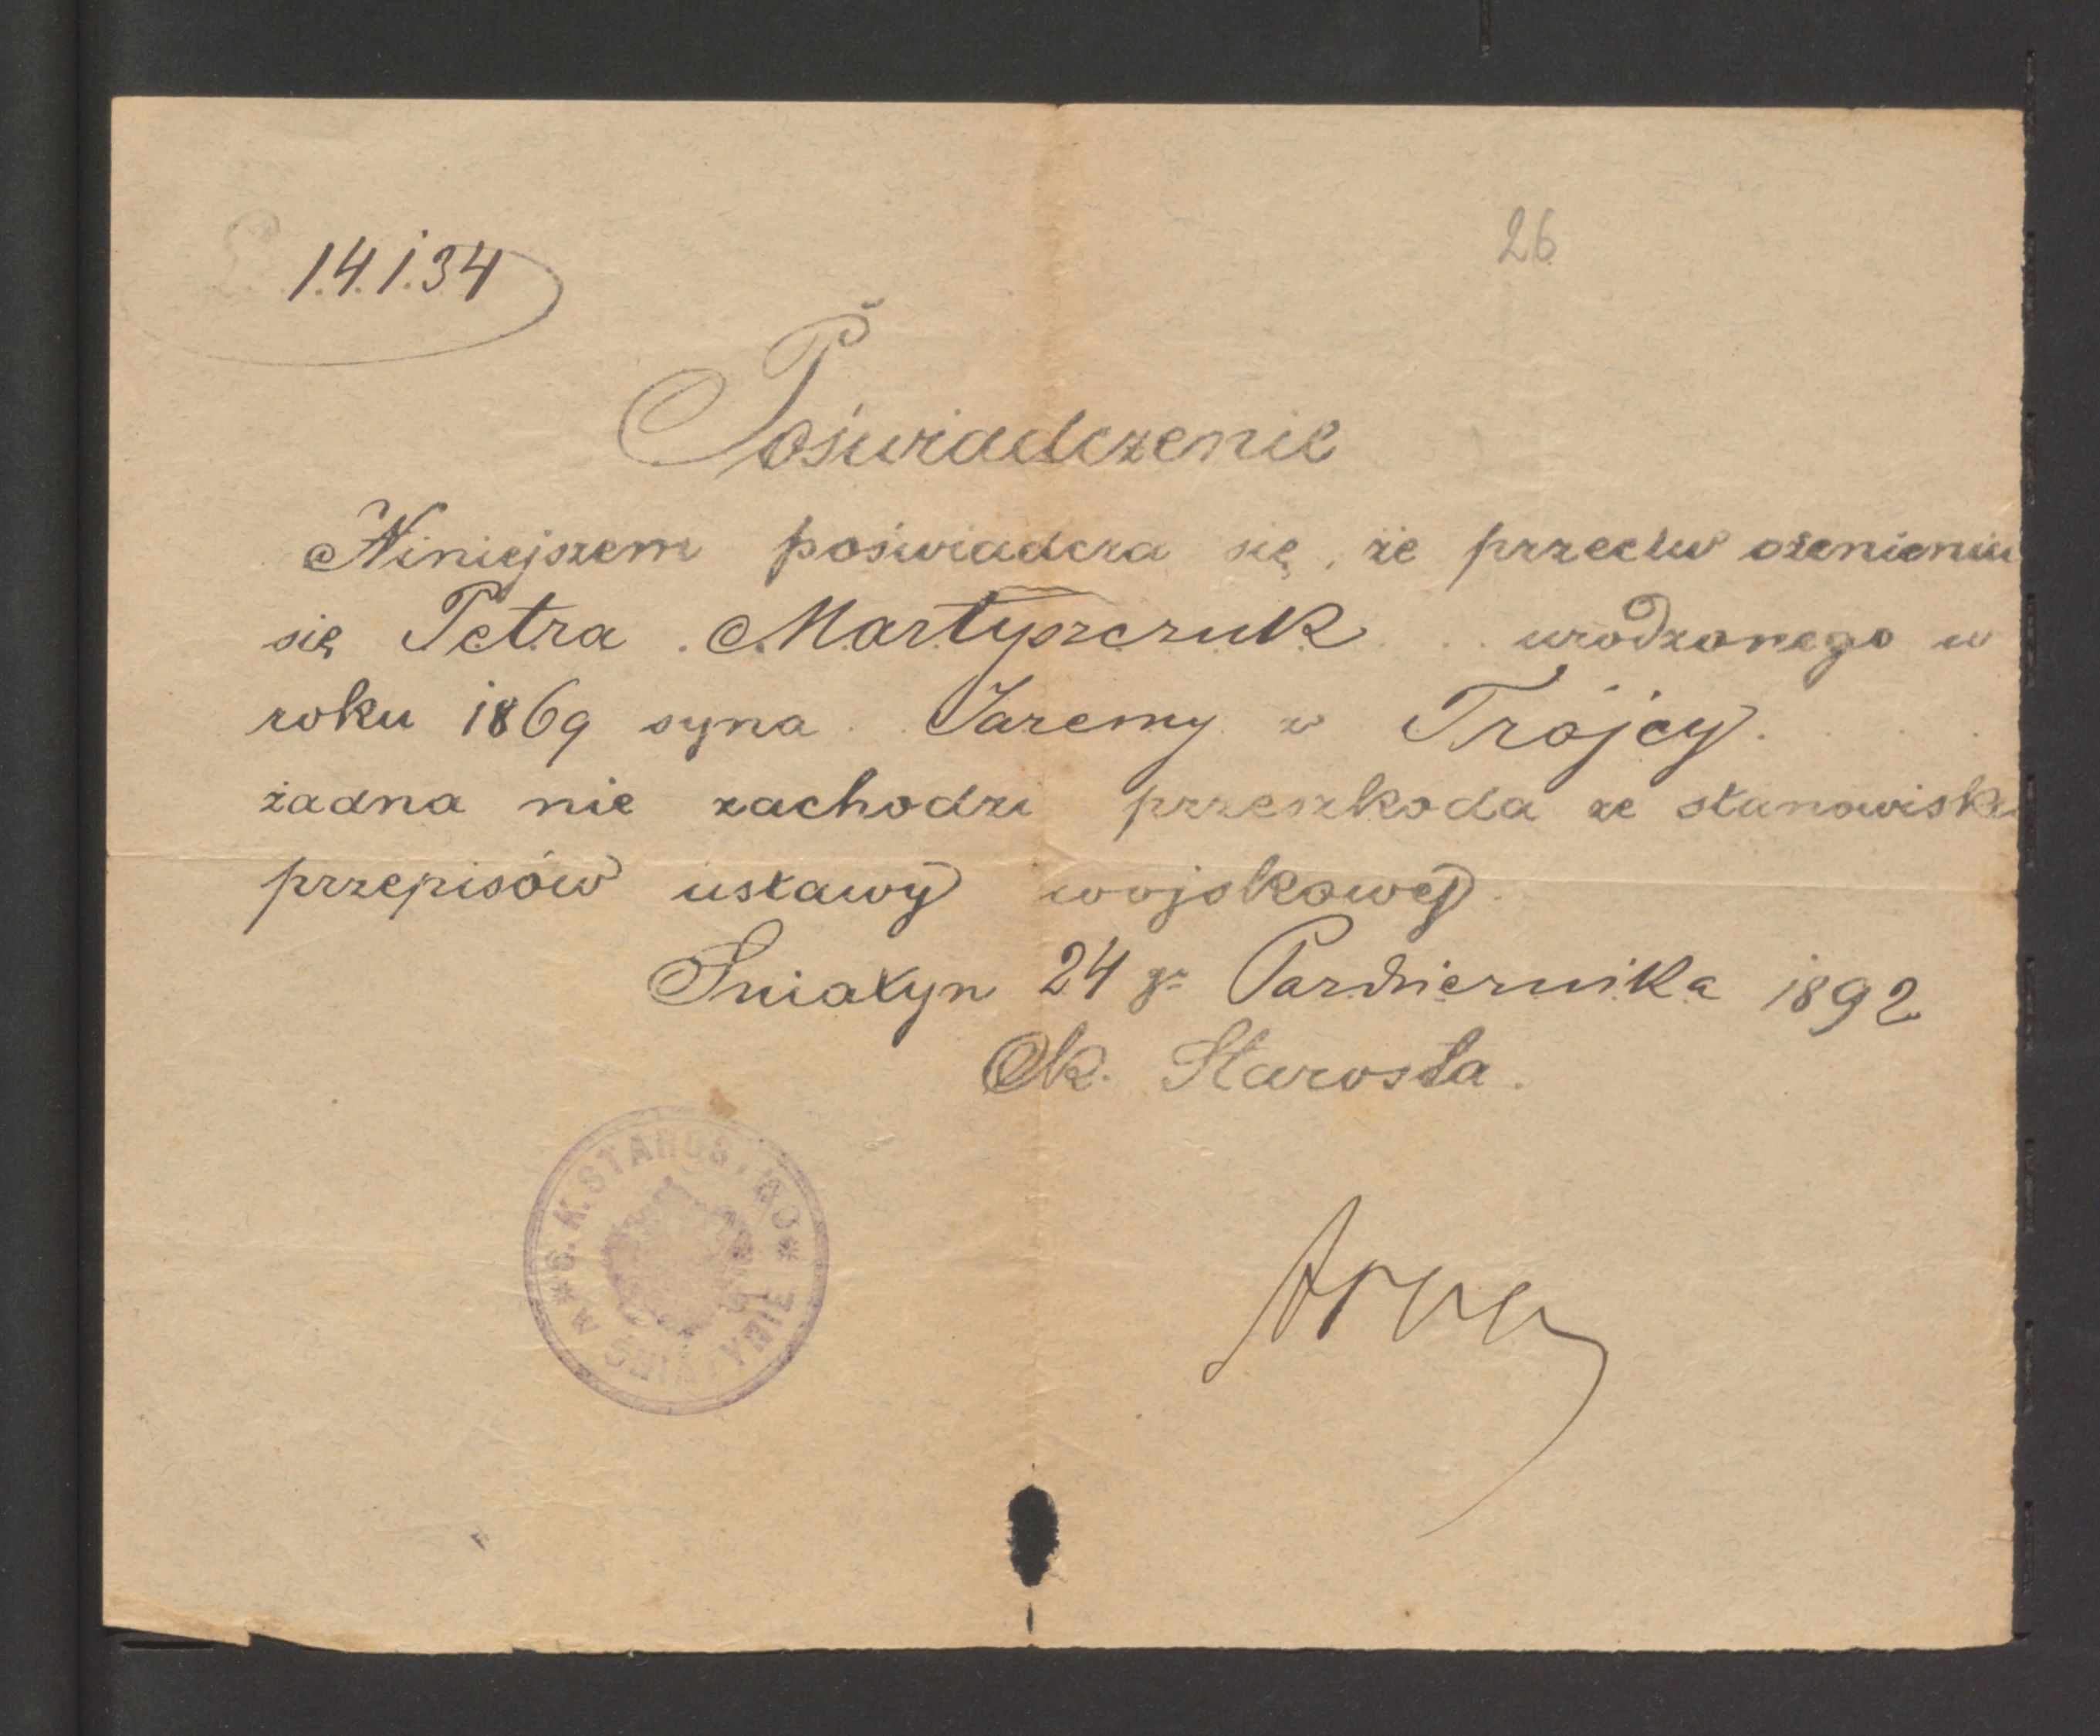 L. 14134
26
Poświadczenie
Niniejszem poświadcza się, że przeciw ożenieniu
się Petra Martyszczuk urodzonego w
roku 1869 syna Jaremy z Trójcy.
żadna nie zachodzi przeszkoda ze stanowiska
przepisów ustawy wojskowej.
Śniatyn 24 go Października 1892
Ck. Starosta.
* C.K. STAROSTWO *
W ŚNIATYNIE